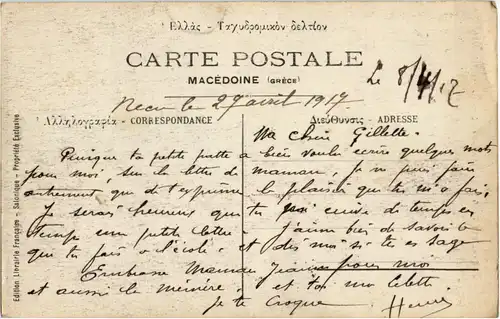 Ελλάς - Ταχυδρομικόν δελτίον
CARTE POSTALE
MACÉDOINE (GRÈCE)
Le 8/4/17
Recu le 29 avril 1917
Αλληλογραφία - CORRESPONDANCE
Διεύθυνσις - ADRESSE
Ma chère Gillette.
Puisque ta petite patte a bien voulu écrire quelques mots
pour moi, sur la lettre de maman, je ne puis faire
autrement que de t'exprimer le plaisir que tu m'as fais
Je serais heureux que tu de temps en
temps une petite lettre. J'aime bien de savoir
que tu fais à l'école et dis moi si tu es sage
Embrasse Maman, pour moi
et aussi la mémère, et toi ma
je te croque Henri
Edition Librairie Française - Salonique - Propriété Exclusive